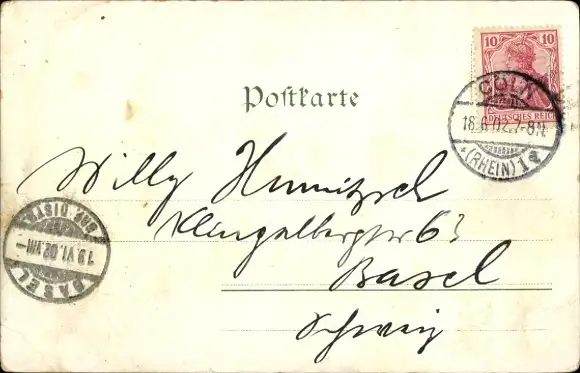 10
DEUTSCHES REICH
CÖLN
18.6.02.7-8N.
*(RHEIN) 1 d
Postkarte
Willy
63
Basel
Schweiz
BASEL
19.VI.02.VIII-
BRF. DISTR.